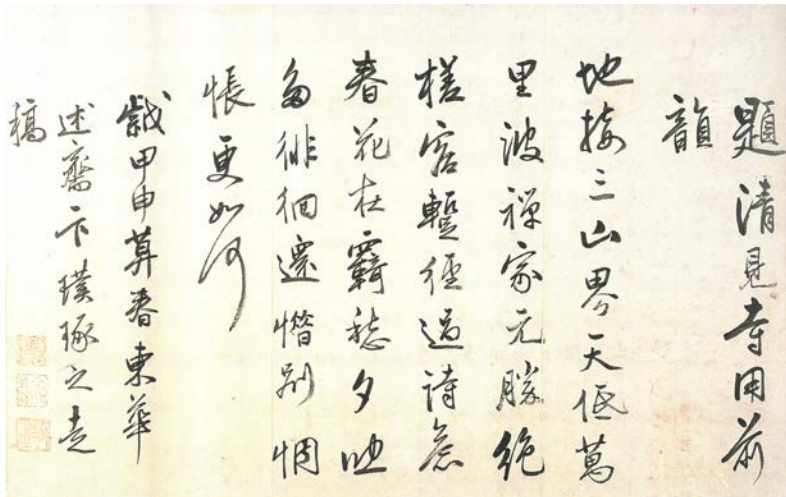 題清見寺用前
韻
地接三山界天低萬
里波禪家元勝絶
槎客蹔經過詩意
春花在羈愁夕吹
多徘徊還惜別惆
悵更如何
歲甲申暮春東華
述齋卞璞琢之走
稿